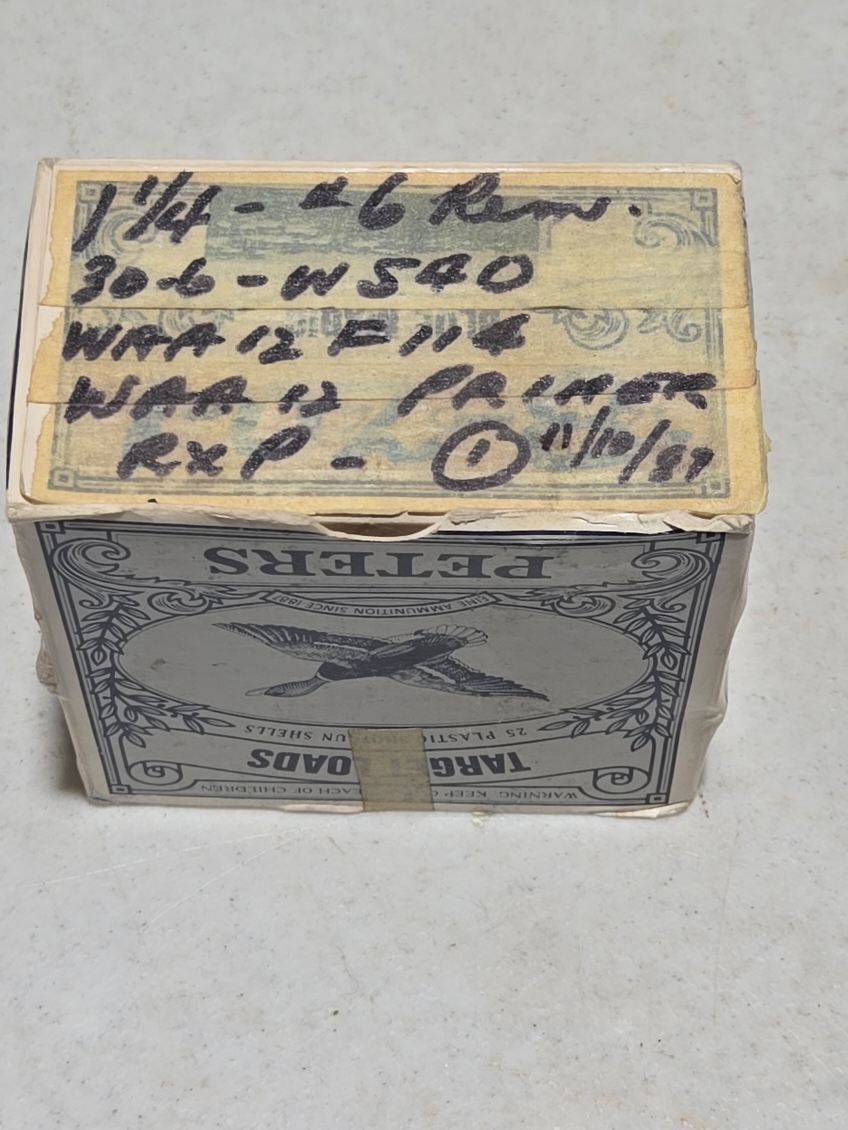 1 1/4 - #6 Rem.
30.6 - W540
WAA12F114
WAA12 PRIMER
RXP - ① 11/10/87
PETERS
FINE AMMUNITION SINCE 1887
25 PLASTIC SHOTGUN SHELLS
TARGET LOADS
WARNING: KEEP O EACH OF CHILDREN